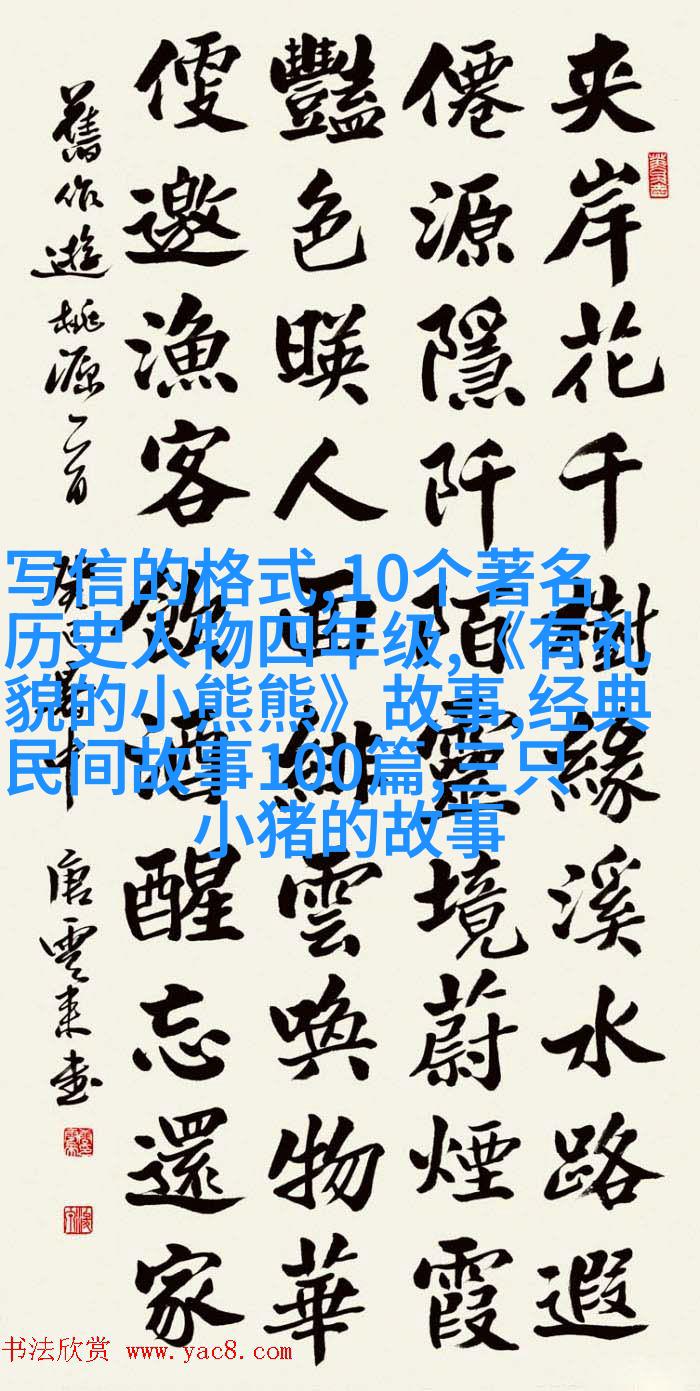 夹岸花千樹緣溪水路遐
僊源隱阡陌靈境蔚煙霞
豔色暎人面紲雲喚物華
便邀漁客飲酒醒忘還家
舊作遊桃源二首
唐雲来書
写信的格式,10个著名
历史人物四年级,《有礼
貌的小熊熊》故事,经典
民间故事100篇,三只
小猪的故事
书法欣赏 www.yac8.com